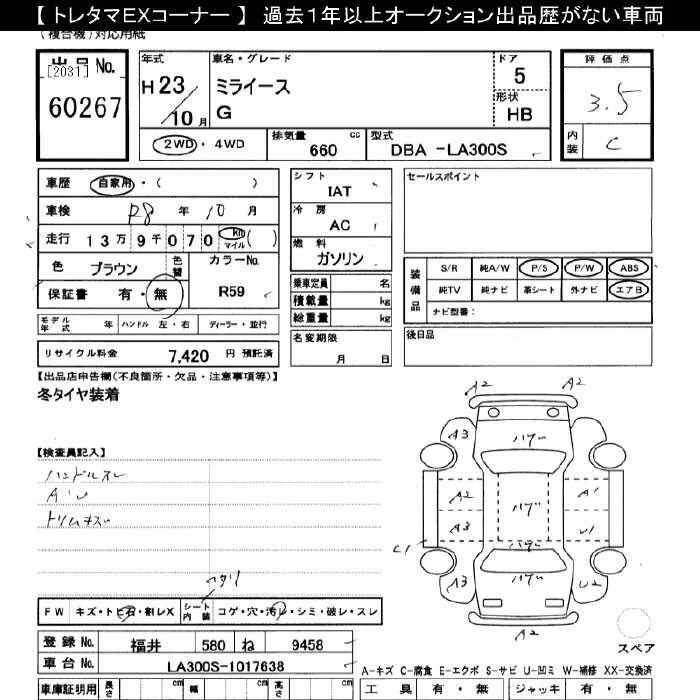 【 トレタマEXコーナー 】 過去1年以上オークション出品歴がない車両
(複合機)対応用紙
出品No. [2031] 60267
年式 H23/10月
車名・グレード ミライース G
ドア 5
形状 HB
評価点 3.5
内装 C
2WD・4WD
排気量 660 cc
型式 DBA -LA300S
車歴 自家用・( )
車検 R8年 10月
走行 13万9千070 km マイル ( )
色 ブラウン 色替 カラーNo. R59
保証書 有・無
シフト IAT
冷房 AC
燃料 ガソリン
乗車定員 名
積載量 kg
総重量 kg
セールスポイント
装備品 S/R 純A/W P/S P/W ABS
純TV 純ナビ 革シート 外ナビ エアB
ナビ型番:
モデル年式 年 ハンドル 左・右 ディーラー・並行
名変期限 月 日
後日品
リサイクル料金 7,420 円 預託済
【出品店申告欄(不良箇所・欠品・注意事項等)】
冬タイヤ装着
【検査員記入】
ハンドルスレ
トリムキズ
A2 A2
A3 ハゲ A3
A2 ハゲ A1
A3 U1
C1 ハゲ
A3 ハゲ U2
A2
スペア
FW キズ・トビ石・割レX シート内装 コゲ・穴・汚レ・シミ・破レ・スレ
登録No. 福井 580 ね 9458
車台No. LA300S-1017638
A-キズ C-腐食 E-エクボ S-サビ U-凹ミ W-補修 XX-交換済
車庫証明用 長さ cm 幅 cm 高さ cm
工具 有・無 ジャッキ 有・無